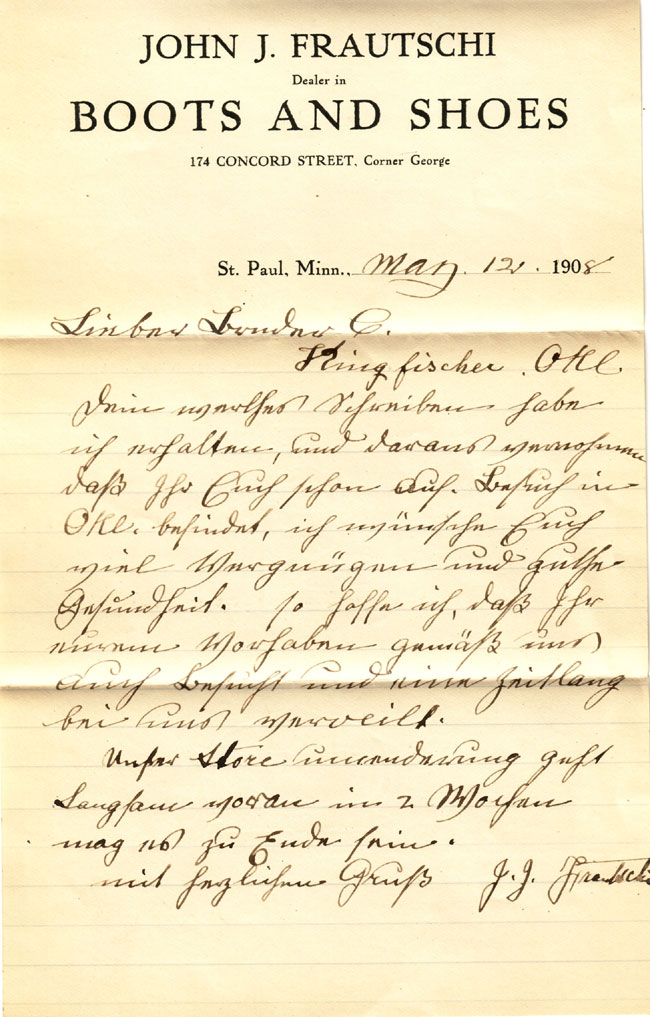 JOHN J. FRAUTSCHI
Dealer in
BOOTS AND SHOES
174 CONCORD STREET, Corner George
St. Paul, Minn., May. 12. 1908
Lieber Bruder C.
Kingfischer. Okl.
Dein werthes Schreiben habe
ich erhalten, und daraus vernohmen
daß Ihr Euch schon auf. Besuch in
Okl. befindet, ich wünsche Euch
viel Vergnügen und guthe
Gesundheit. so hoffe ich, daß Ihr
eurem Vorhaben gemäß uns
auch Besucht und eine zeitlang
bei uns verweilt.
Unser Store umenderung geht
Langsam voran in 2 Wochen
mag es zu Ende sein.
mit herzlichen Gruß J. J. Frautschi